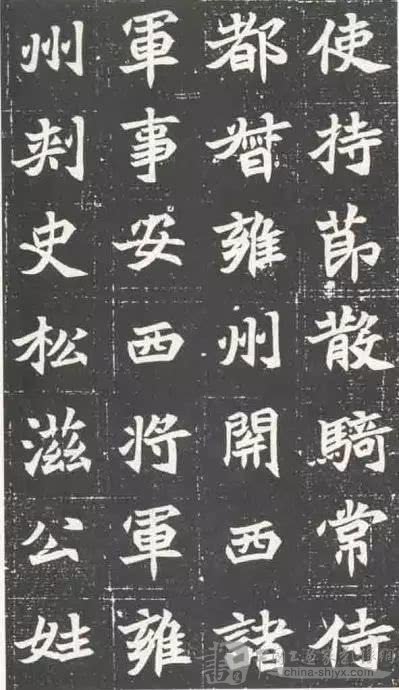 使持節散騎常侍
都督雍州開西諸
軍事安西将軍雍
州刾史松滋公姓
china-shjyx.com